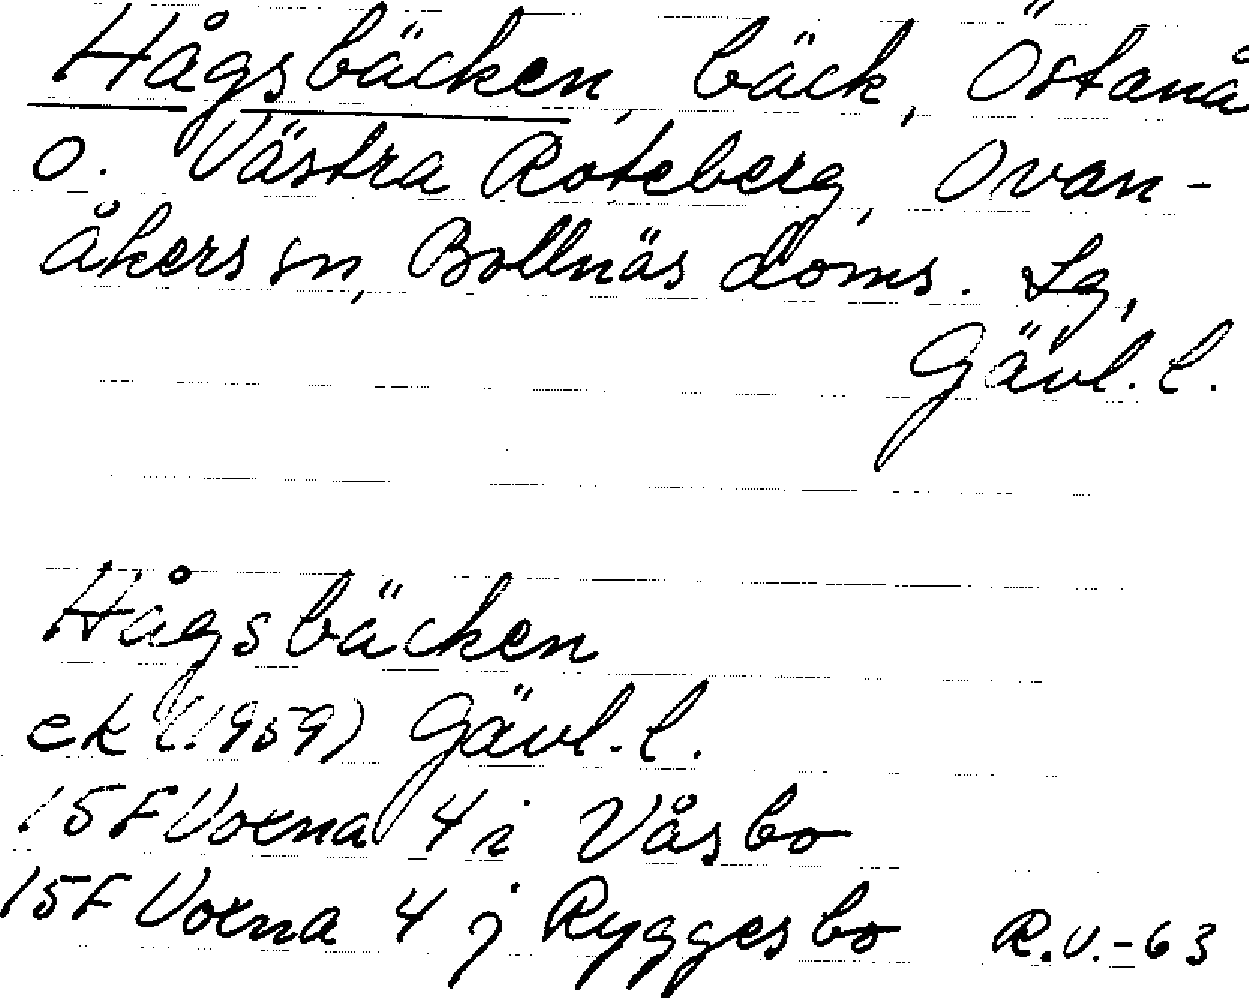 Hågsbäcken, bäck, Östanå
o. Västra Roteberg, Ovan-
åkers sn, Bollnäs doms. Lg,
Gävl. l.
Hågsbäcken
ek (1959) Gävl. l.
15F Voxna 4 i Våsbo
15F Voxna 4 j Ryggesbo R.V.-63